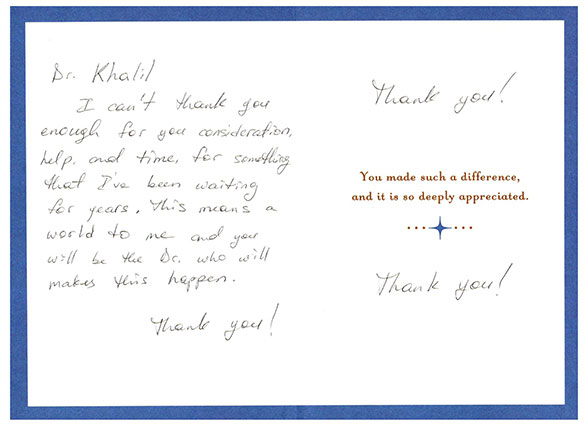 Dr. Khalil
I can't thank you
enough for you consideration,
help, and time, for something
that I've been waiting
for years. This means a
world to me and you
will be the Dr. who will
makes this happen.
Thank you!
Thank you!
You made such a difference,
and it is so deeply appreciated.
Thank you!